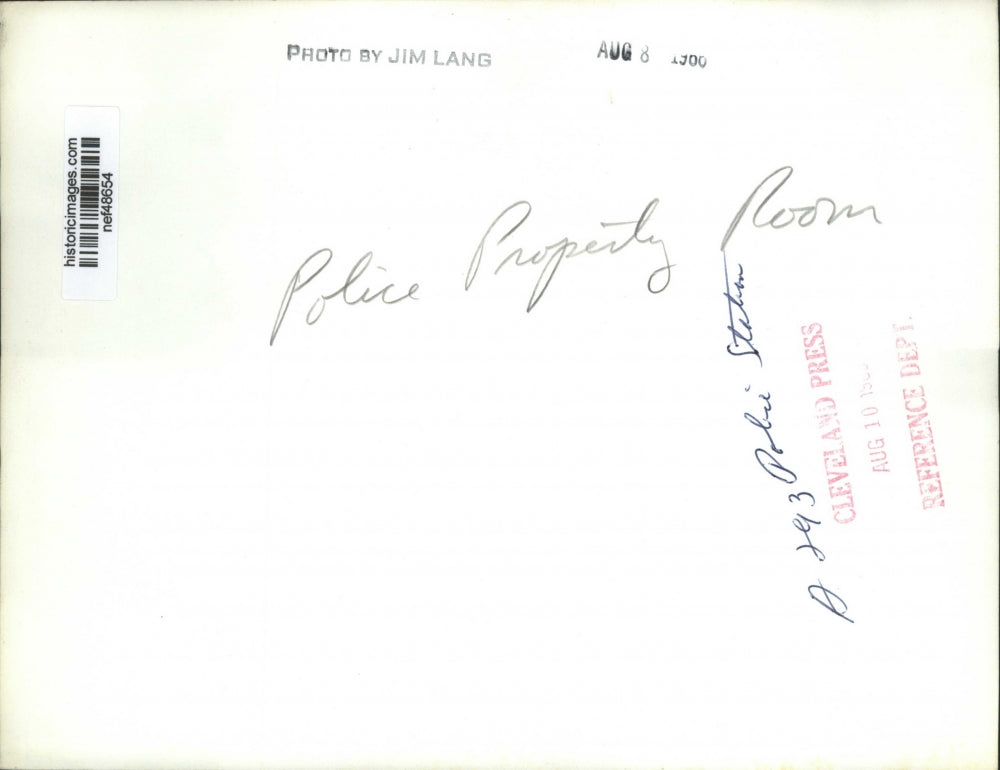 PHOTO BY JIM LANG
AUG 8
historicimages.com
nef48654
Police Property Room
A 293 Police Station
CLEVELAND PRESS
AUG 10
REFERENCE DEPT.